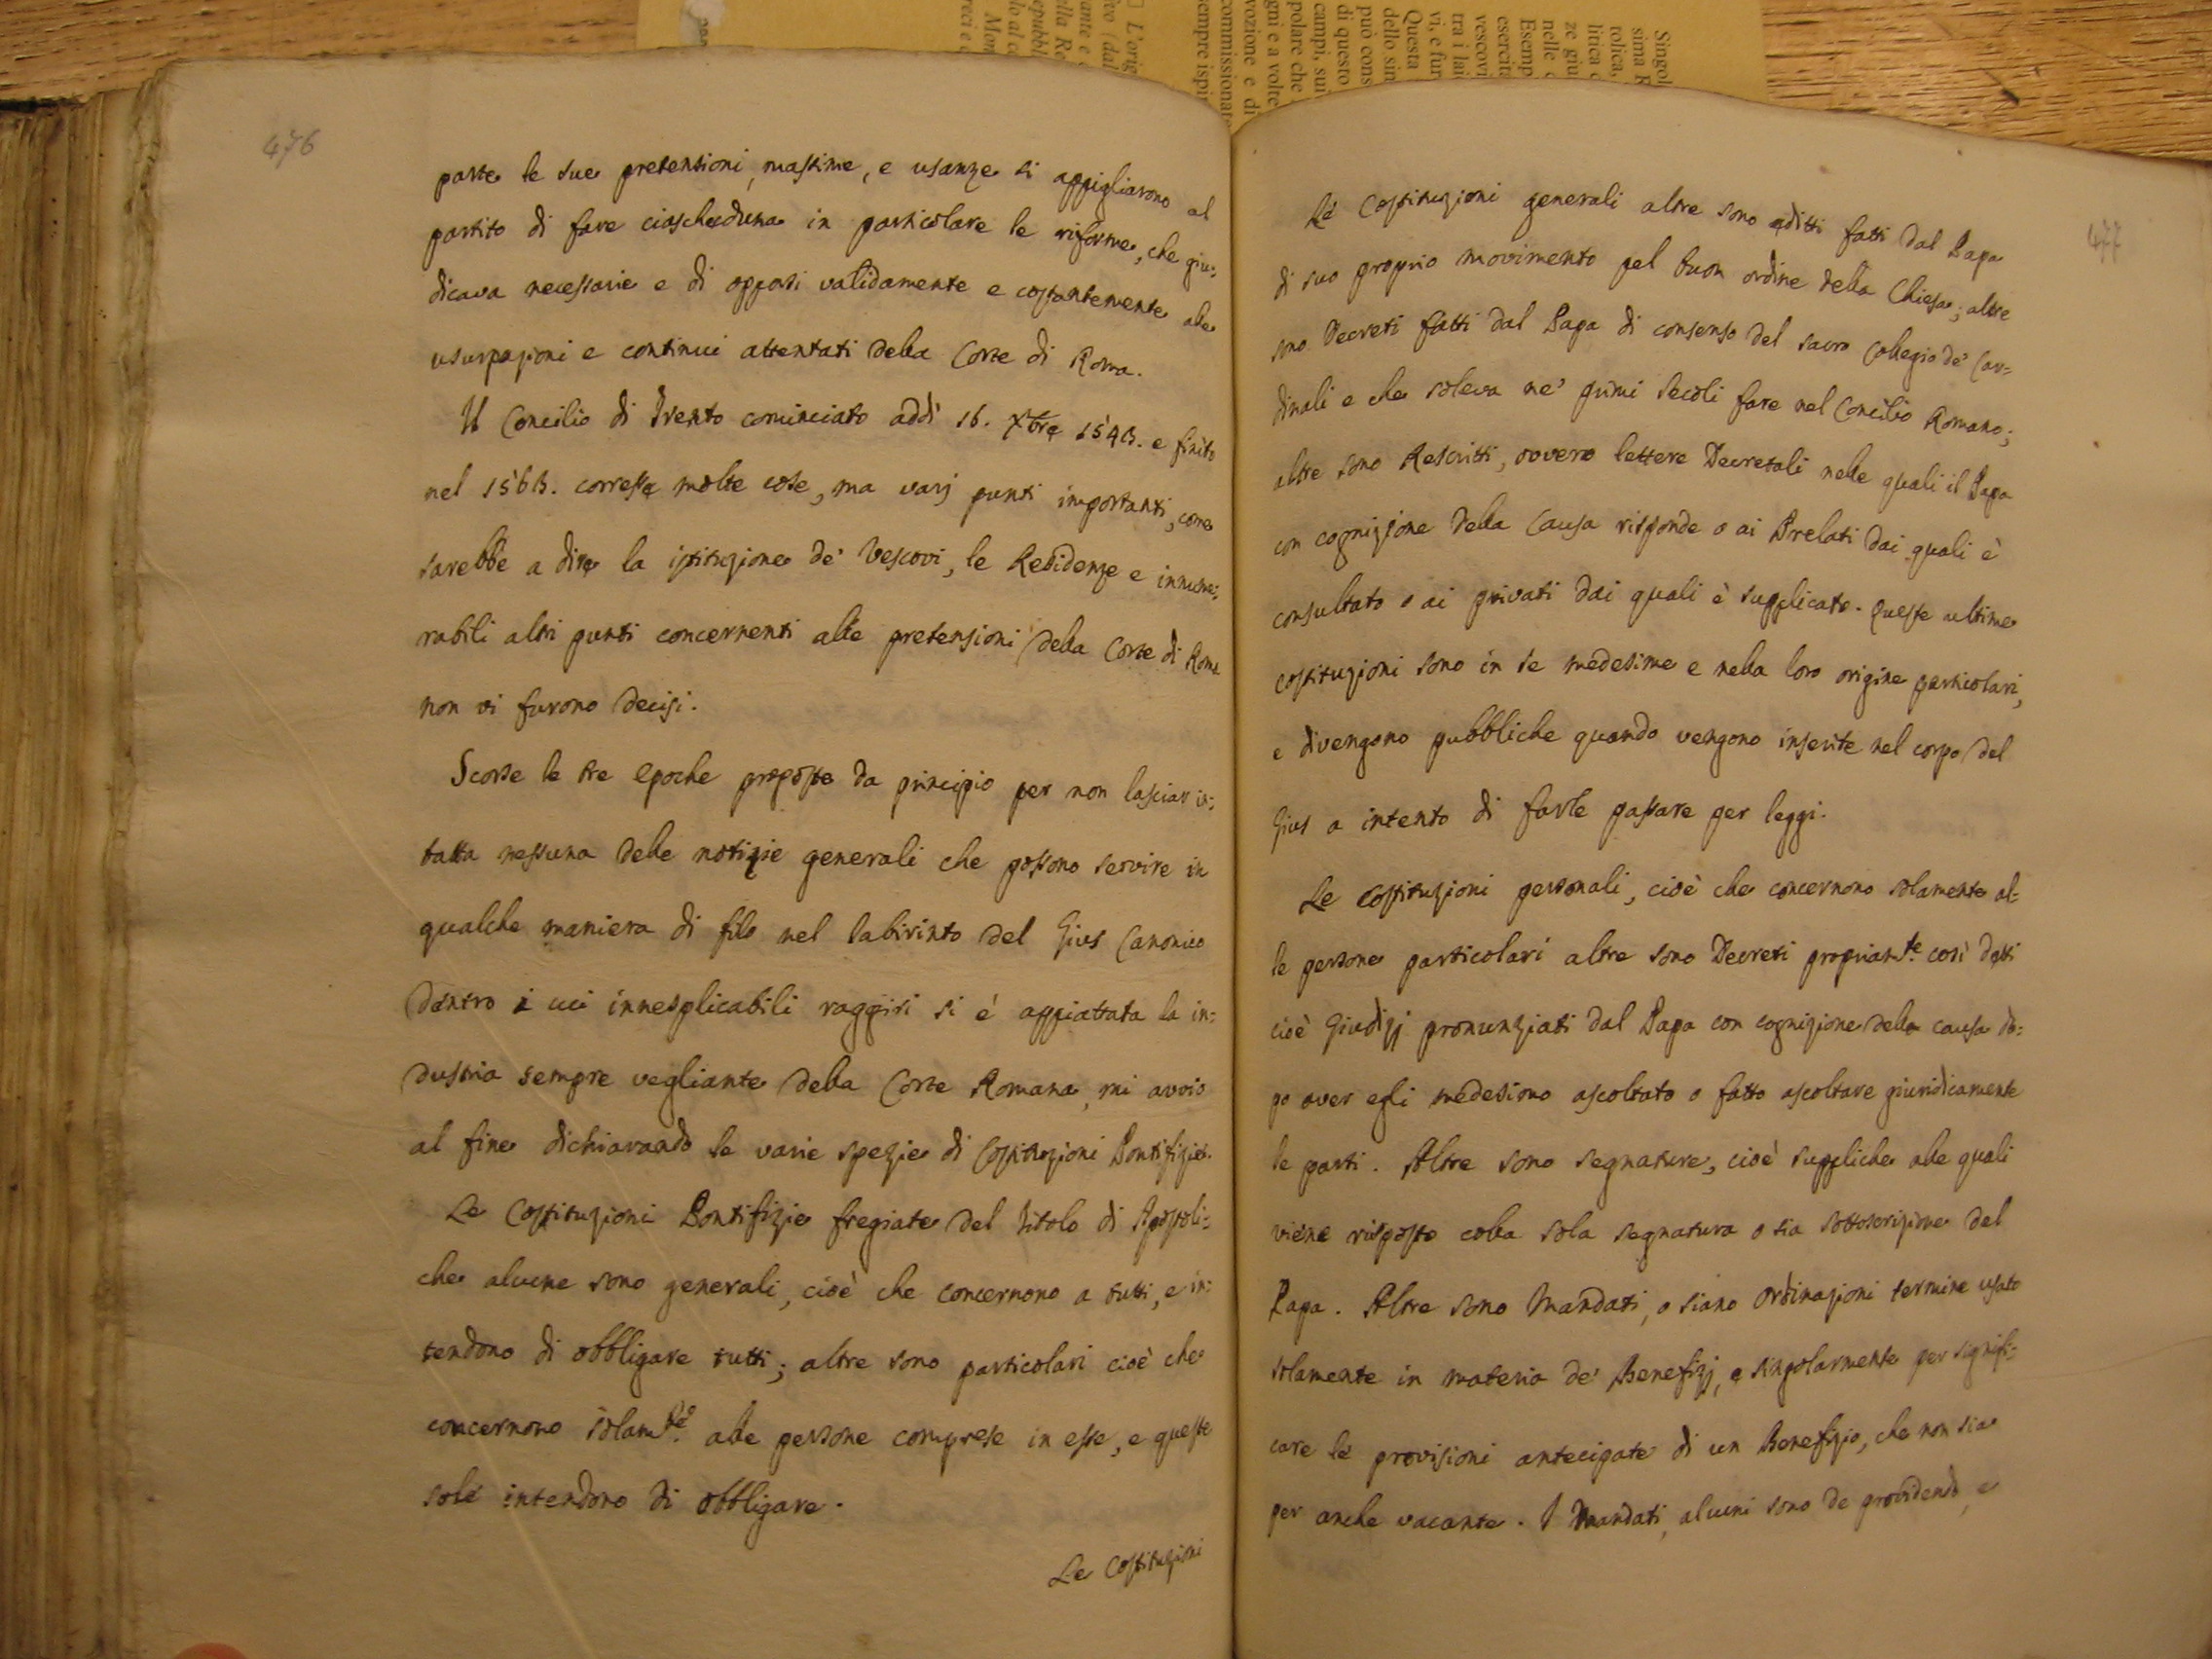 476
parte le sue pretensioni, massime, e usanze si appigliarono al
partito di fare ciascheduna in particolare le riforme, che giu:
dicava necessarie e di opporsi validamente e costantemente alle
usurpazioni e continui attentati della Corte di Roma.
Il Concilio di Trento cominciato addì 16. Xbre 1545. e finito
nel 1563. corresse molte cose, ma varj punti importanti, come
sarebbe a dire la istituzione de' Vescovi, le Residenze e innume:
rabili altri punti concernenti alle pretensioni della Corte di Roma
non vi furono decisi.
Scorse le tre epoche proposte da principio per non lasciar in:
tatta nessuna delle notizie generali che possono servire in
qualche maniera di filo nel labirinto del Gius Canonico
dentro i cui innesplicabili raggiri si é appiattata la in:
dustria sempre vegliante della Corte Romana, mi avvio
al fine dichiarando le varie spezie di Costituzioni Pontifizie.
Le Costituzioni Pontifizie fregiate del titolo di Apostoli:
che alcune sono generali, cioè che concernono a tutti, e in:
tendono di obbligare tutti; altre sono particolari cioè che
concernono solam.te alle persone comprese in esse, e queste
sole intendono di obbligare.
Le Costituzioni
477
Le Costituzioni generali altre sono editti fatti dal Papa
di suo proprio movimento pel buon ordine della Chiesa; altre
sono Decreti fatti dal Papa di consenso del sacro Collegio de' Car=
dinali e che soleva ne' primi secoli fare nel Concilio Romano;
altre sono Rescritti, ovvero lettere Decretali nelle quali il Papa
con cognizione della Causa risponde o ai Prelati dai quali è
consultato o ai privati dai quali è supplicato. Queste ultime
costituzioni sono in se medesime e nella loro origine particolari,
e divengono pubbliche quando vengono inserite nel corpo del
Gius a intento di farle passare per leggi.
Le Costituzioni personali, cioè che concernono solamente al=
le persone particolari altre sono Decreti propriam.te così detti
cioè Giudizj pronunziati dal Papa con cognizione della causa do:
po aver egli medesimo ascoltato o fatto ascoltare giuridicamente
le parti. Altre sono segnature, cioè suppliche alle quali
viene risposto colla sola segnatura o sia sottoscrizione del
Papa. Altre sono Mandati, o siano Ordinazioni termine usato
solamente in materia de' Benefizj, e singolarmente per signifi:
care le provisioni antecipate di un Benefizio, che non sia
per anche vacante. I Mandati, alcuni sono de providendo, e